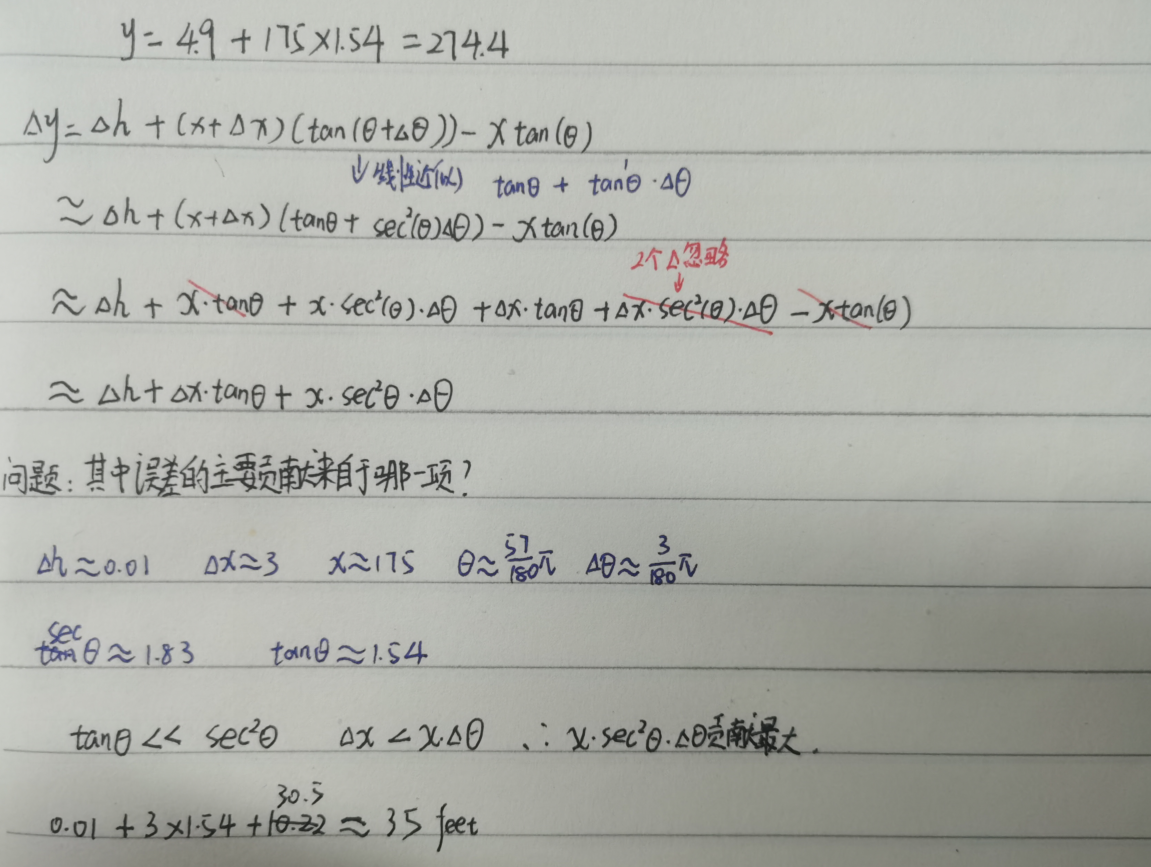 y = 4.9 + 175×1.54 = 274.4
Δy = Δh + (x+Δx)(tan(θ+Δθ)) - x tan(θ)
↓线性近似 tanθ + tan'θ·Δθ
≈ Δh + (x+Δx)(tanθ + sec²(θ)Δθ) - x tan(θ)
2个Δ忽略
↓
≈ Δh + x·tanθ + x·sec²(θ)·Δθ + Δx·tanθ + Δx·sec²(θ)·Δθ - x tan(θ)
≈ Δh + Δx·tanθ + x·sec²θ·Δθ
问题：其中误差的主要贡献来自于哪一项？
Δh≈0.01 Δx≈3 x≈175 θ≈57/180π Δθ≈3/180π
sec
tanθ≈1.83 tanθ≈1.54
tanθ << sec²θ Δx < x·Δθ ∴ x·sec²θ·Δθ贡献最大.
30.5
0.01 + 3×1.54 + 10.22 ≈ 35 feet